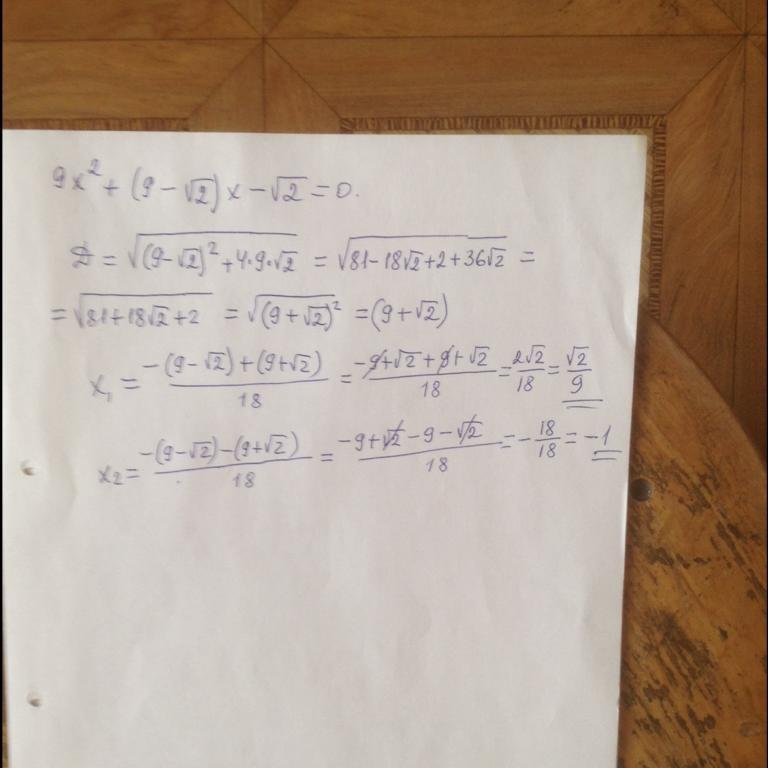 9x² + (9 − √2)x − √2 = 0.
D = √((9−√2)² + 4·9·√2) = √(81−18√2+2+36√2) =
= √(81+18√2+2) = √((9+√2)²) = (9+√2)
x₁ = (−(9−√2)+(9+√2))/18 = (−9+√2+9+√2)/18 = 2√2/18 = √2/9
x₂ = (−(9−√2)−(9+√2))/18 = (−9+√2−9−√2)/18 = −18/18 = −1